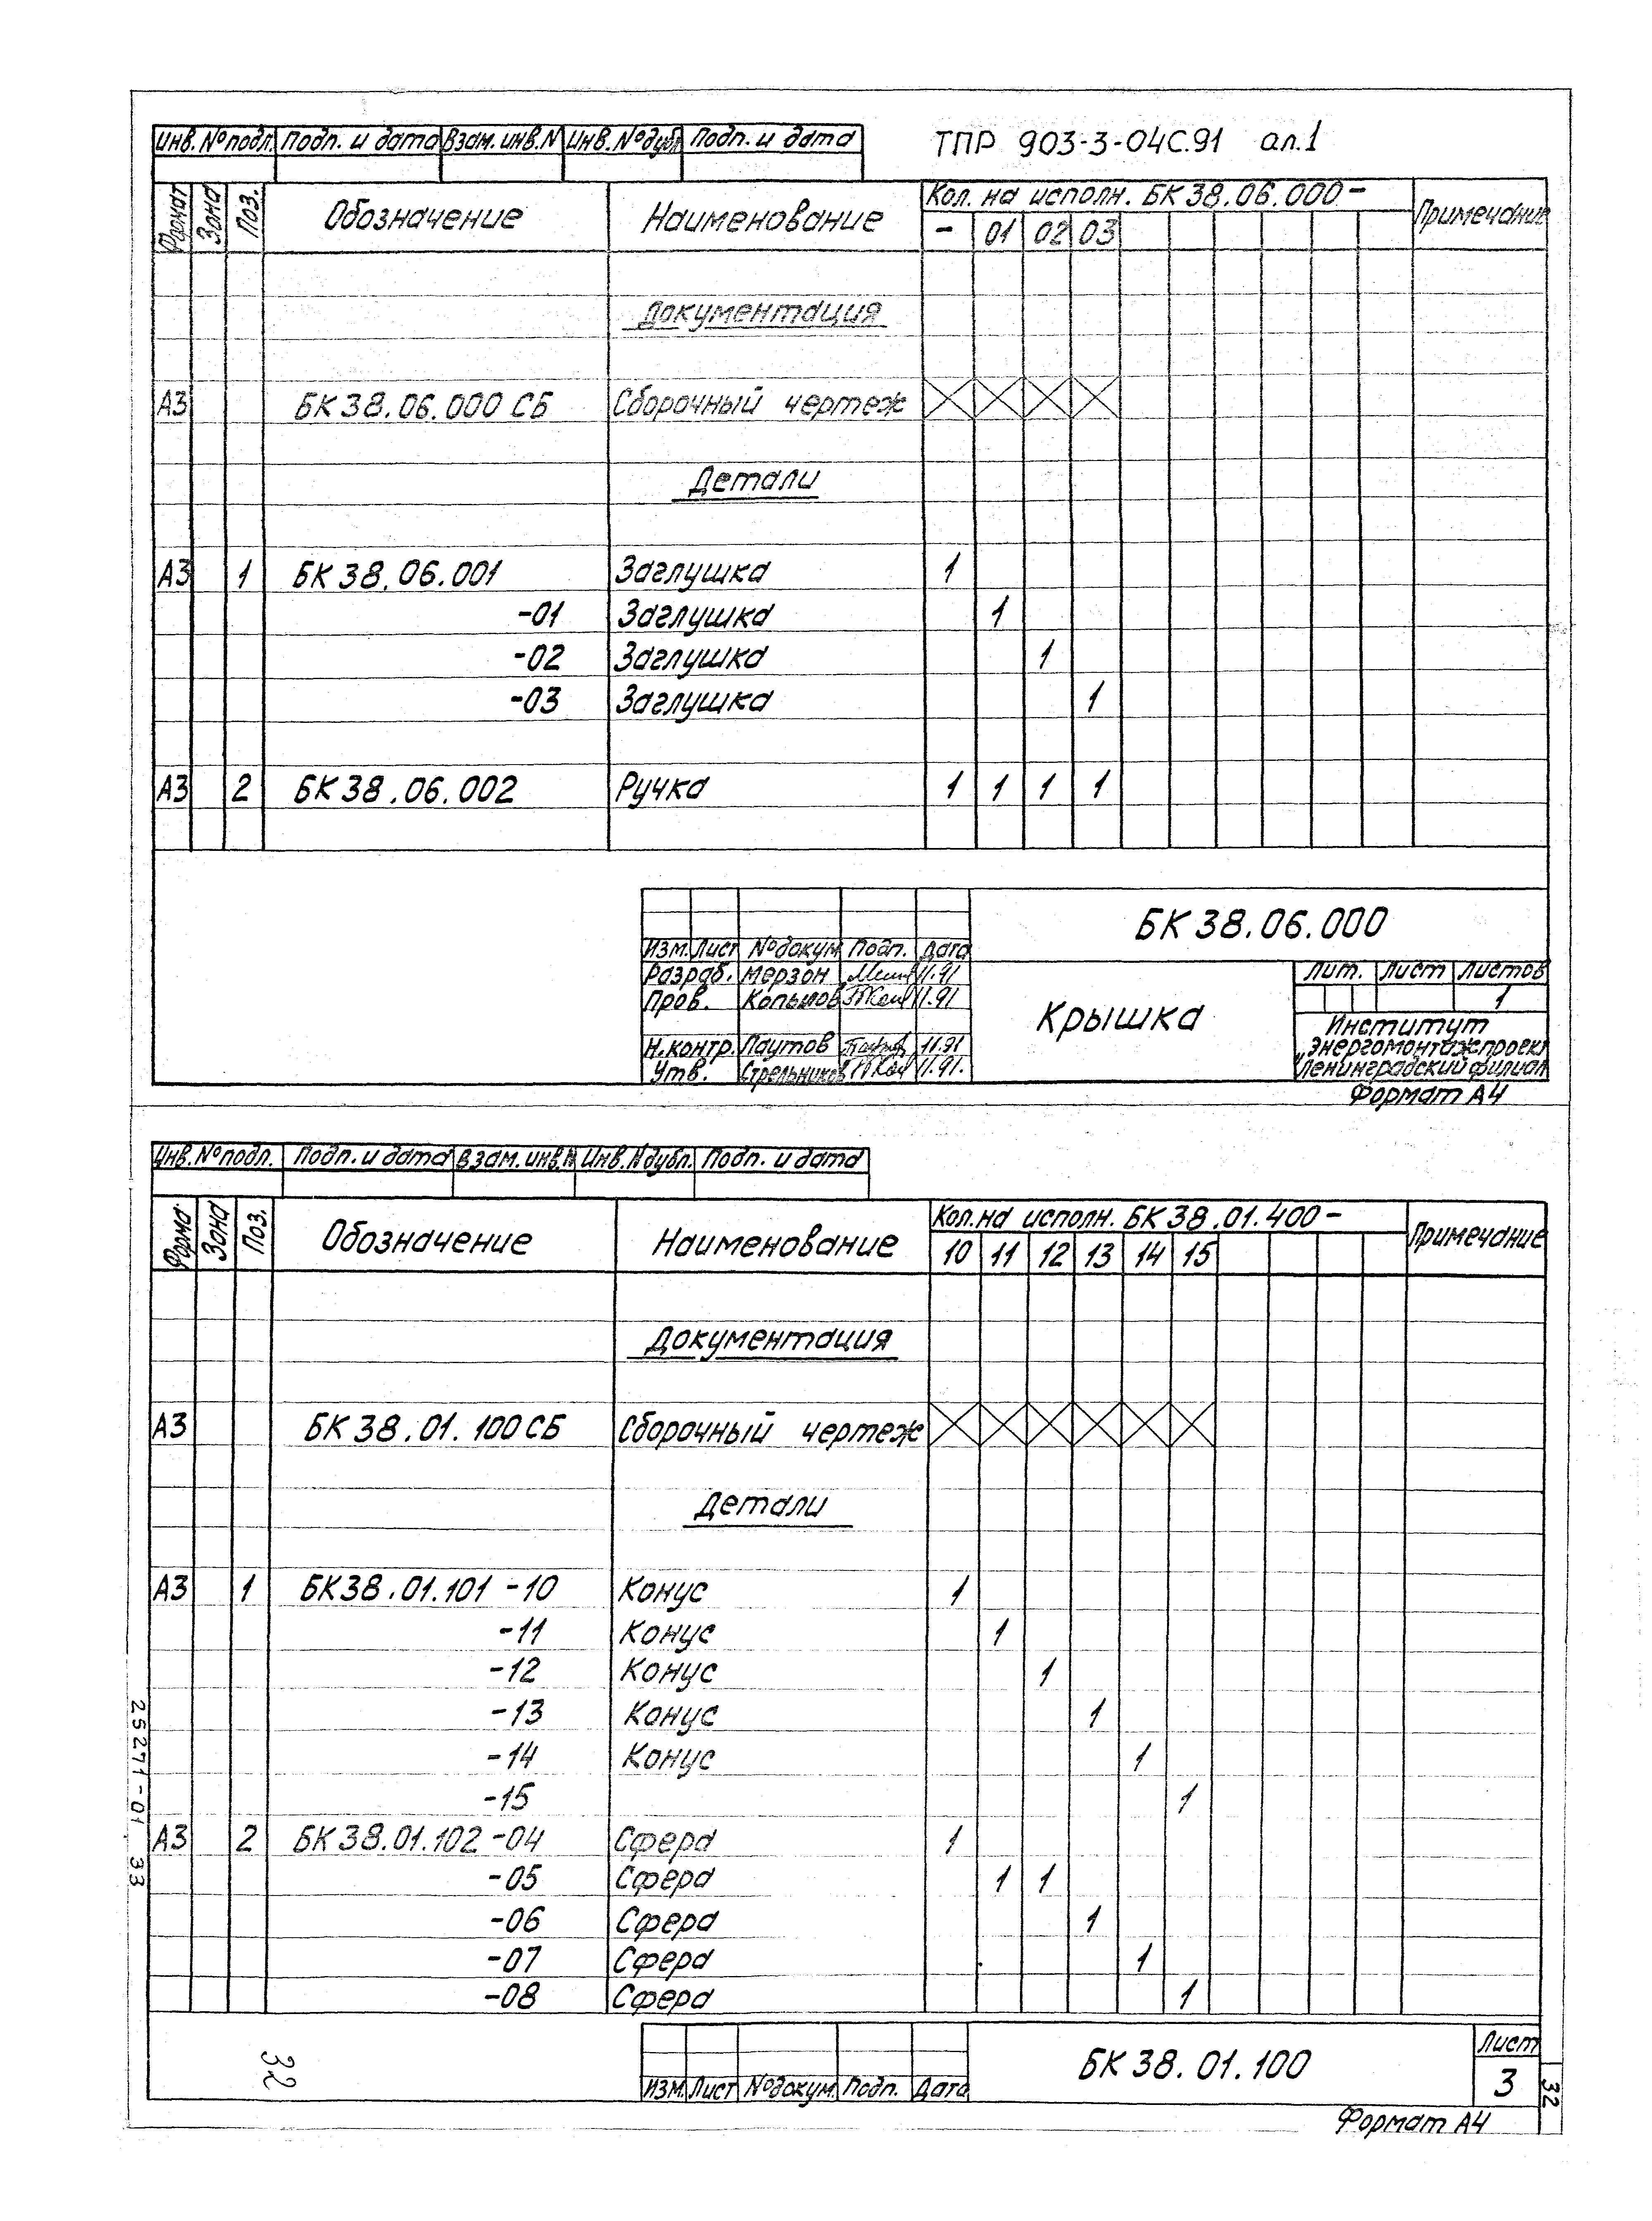 ТПР 903-3-04С.91 ал.1
Инв. № подл. Подп. и дата Взам. инв. N Инв. № дубл. Подп. и дата
Формат Зона Поз. Обозначение Наименование Кол. на исполн. БК 38.06.000- Примечание
- 01 02 03
Документация
А3 БК 38.06.000 СБ Сборочный чертеж
Детали
А3 1 БК 38.06.001 Заглушка 1
-01 Заглушка 1
-02 Заглушка 1
-03 Заглушка 1
А3 2 БК 38.06.002 Ручка 1 1 1 1
БК 38.06.000
Изм. Лист № докум. Подп. Дата
Разраб. Мерзон 11.91
Пров. Копылов 11.91
Н.контр. Паутов 11.91
Утв. Стрельников 11.91.
Крышка
Лит. Лист Листов
1
Институт
"Энергомонтажпроект
Ленинградский филиал
Формат А4
Инв. № подл. Подп. и дата Взам. инв. N Инв. N дубл. Подп. и дата
Форма. Зона Поз. Обозначение Наименование Кол. на исполн. БК 38.01.400- Примечание
10 11 12 13 14 15
Документация
А3 БК 38.01.100 СБ Сборочный чертеж
Детали
А3 1 БК 38.01.101 -10 Конус 1
-11 Конус 1
-12 Конус 1
-13 Конус 1
-14 Конус 1
-15 1
А3 2 БК 38.01.102 -04 Сфера 1
-05 Сфера 1 1
-06 Сфера 1
-07 Сфера 1
-08 Сфера 1
Изм. Лист № докум. Подп. Дата
БК 38.01.100
Лист
3
Формат А4
32
32
25271-01 33